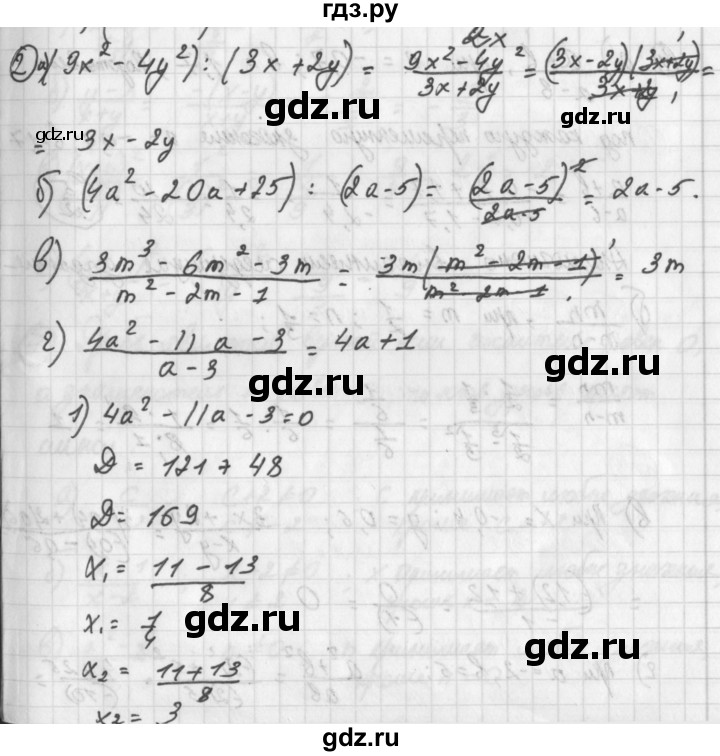 гдз.ру
2) а) (9x² - 4y²) : (3x + 2y) = (9x² - 4y²)/(3x + 2y) = (3x - 2y)(3x + 2y)/(3x + 2y) =
gdz.ru
gdz.ru
gdz.ru
= 3x - 2y
б) (4a² - 20a + 25) : (2a - 5) = (2a - 5)²/(2a - 5) = 2a - 5.
в) (3m³ - 6m² - 3m)/(m² - 2m - 1) = 3m(m² - 2m - 1)/(m² - 2m - 1) = 3m
г) (4a² - 11a - 3)/(a - 3) = 4a + 1
gdz.ru
gdz.ru
1) 4a² - 11a - 3 = 0
D = 121 + 48
gdz.ru
D = 169
x₁ = (11 - 13)/8
gdz.ru
x₁ = 1/4
x₂ = (11 + 13)/8
gdz.ru
x₂ = 3
гдз.ру